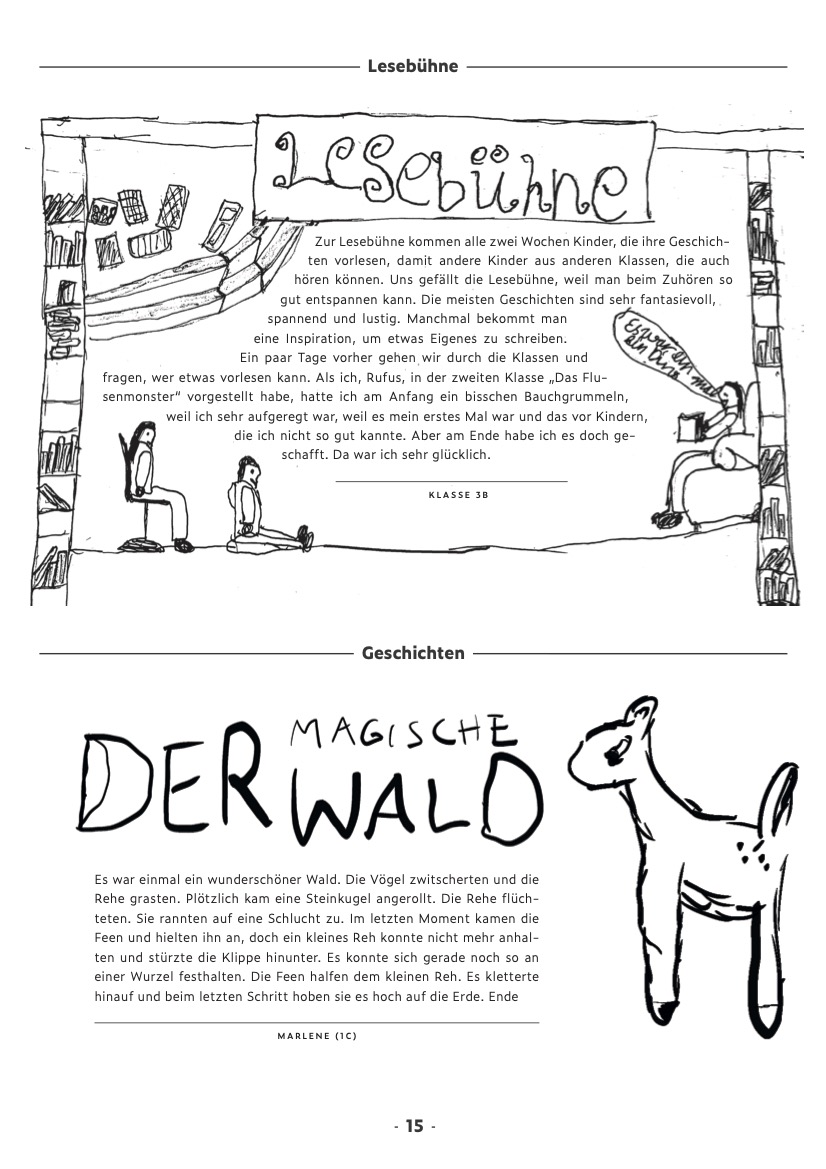 Lesebühne
Lesebühne
Zur Lesebühne kommen alle zwei Wochen Kinder, die ihre Geschich-
ten vorlesen, damit andere Kinder aus anderen Klassen, die auch
hören können. Uns gefällt die Lesebühne, weil man beim Zuhören so
gut entspannen kann. Die meisten Geschichten sind sehr fantasievoll,
spannend und lustig. Manchmal bekommt man
eine Inspiration, um etwas Eigenes zu schreiben.
Ein paar Tage vorher gehen wir durch die Klassen und
fragen, wer etwas vorlesen kann. Als ich, Rufus, in der zweiten Klasse „Das Flu-
senmonster“ vorgestellt habe, hatte ich am Anfang ein bisschen Bauchgrummeln,
weil ich sehr aufgeregt war, weil es mein erstes Mal war und das vor Kindern,
die ich nicht so gut kannte. Aber am Ende habe ich es doch ge-
schafft. Da war ich sehr glücklich.
Es war ein mal
ein
KLASSE 3B
Geschichten
DER MAGISCHE
WALD
Es war einmal ein wunderschöner Wald. Die Vögel zwitscherten und die
Rehe grasten. Plötzlich kam eine Steinkugel angerollt. Die Rehe flüch-
teten. Sie rannten auf eine Schlucht zu. Im letzten Moment kamen die
Feen und hielten ihn an, doch ein kleines Reh konnte nicht mehr anhal-
ten und stürzte die Klippe hinunter. Es konnte sich gerade noch so an
einer Wurzel festhalten. Die Feen halfen dem kleinen Reh. Es kletterte
hinauf und beim letzten Schritt hoben sie es hoch auf die Erde. Ende
MARLENE (1C)
- 15 -